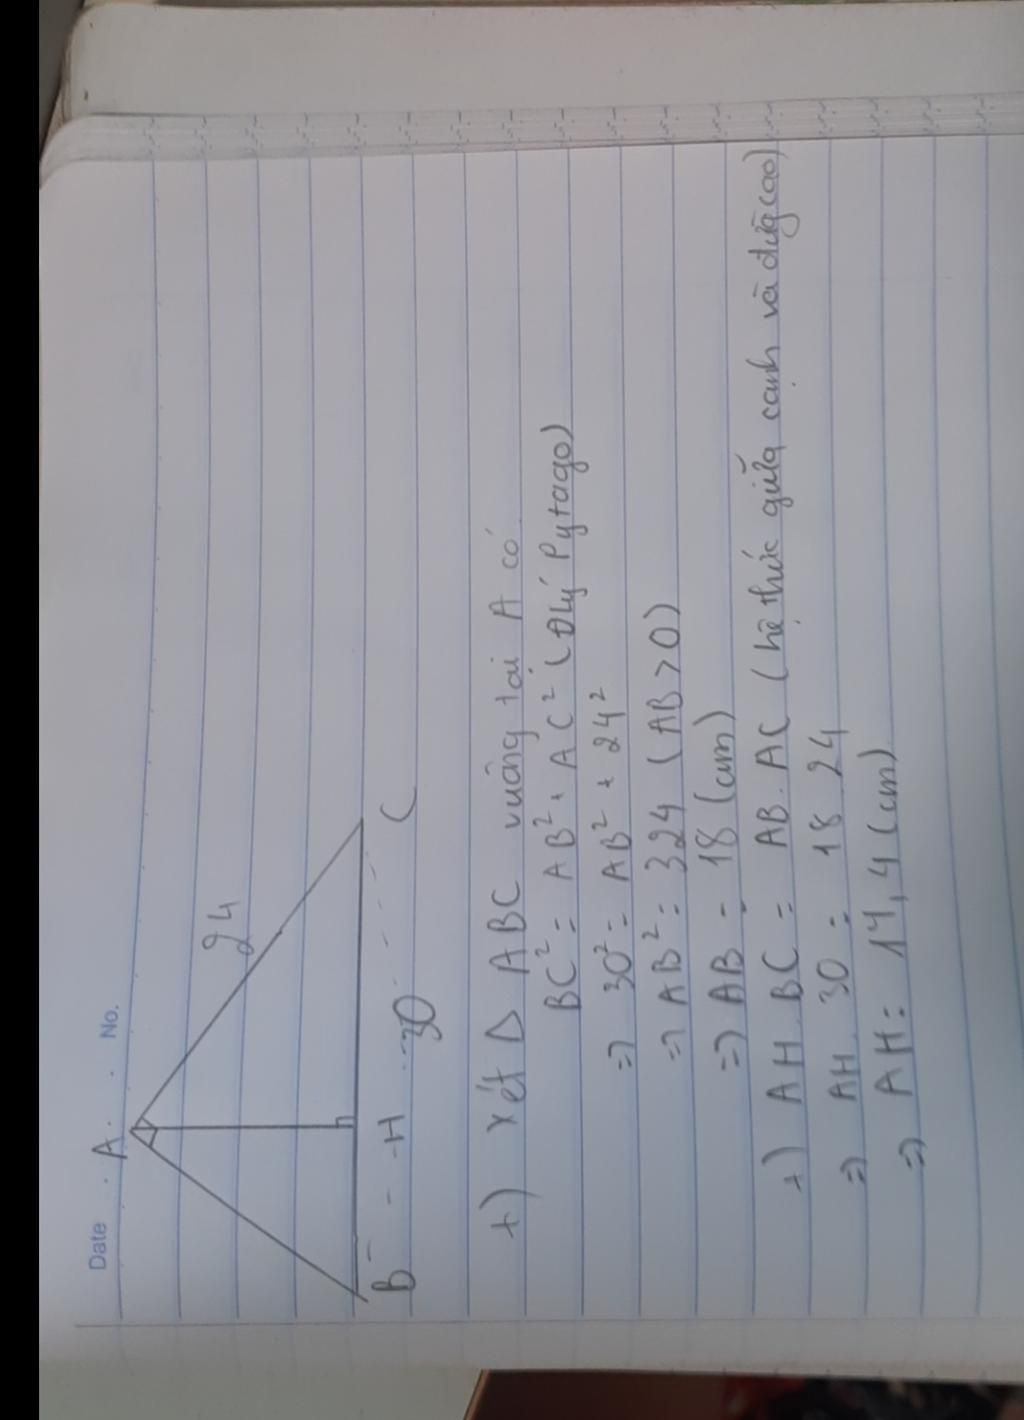 Date . . . No.
A
24
B H C
30
+) xét Δ ABC vuông tại A có
BC² = AB² + AC² (Đlý Pytago)
=) 30² = AB² + 24²
=) AB² = 324 (AB > 0)
=) AB = 18 (cm)
+) AH . BC = AB . AC (hệ thức giữa cạnh và đường cao)
=) AH . 30 = 18 . 24
=) AH = 14,4 (cm)